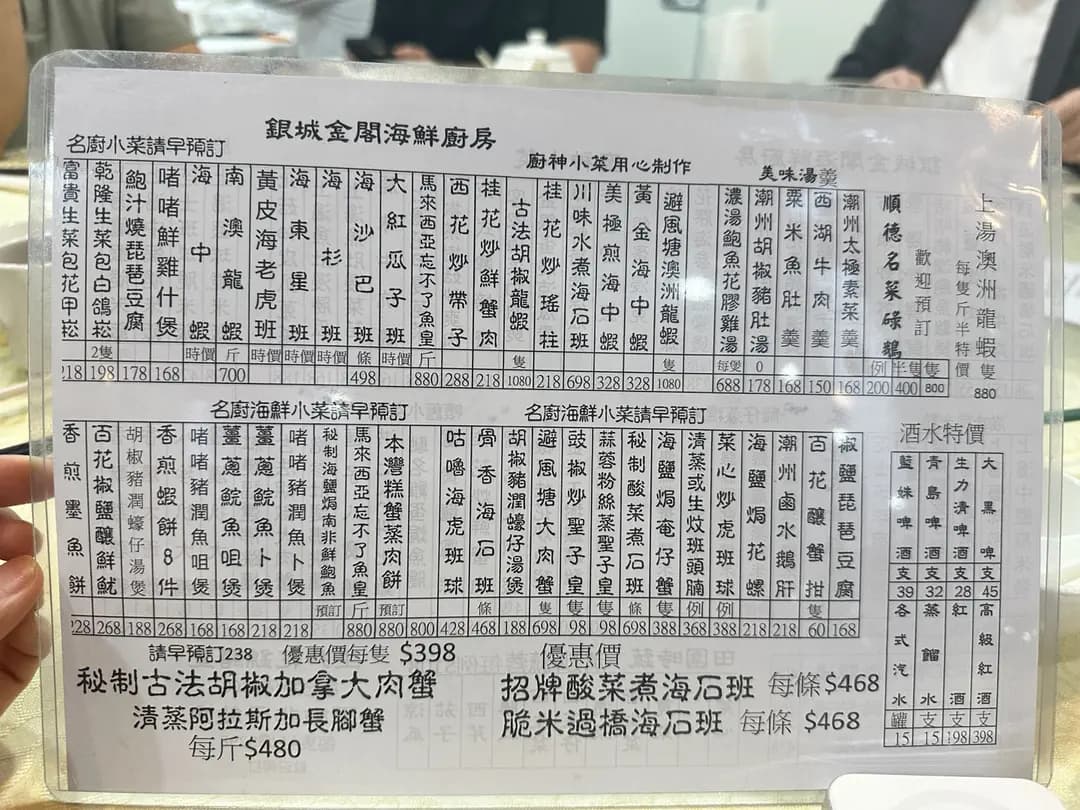 銀城金閣海鮮廚房
上湯澳洲龍蝦 隻 880
每隻斤半特價
歡迎預訂
順德名菜碌鵝 例 200 半隻 400 隻 800
美味湯羹
潮州太極素菜羹 168
西湖牛肉羹 150
粟米魚肚羹 168
潮州胡椒豬肚湯 0 178
濃湯鮑魚花膠雞湯 每煲 688
廚神小菜用心制作
避風塘澳洲龍蝦 隻 1080
黃金海中蝦 328
美極煎海中蝦 328
川味水煮海石班 698
桂花炒瑤柱 218
古法胡椒龍蝦 隻 1080
桂花炒鮮蟹肉 218
西花炒帶子 288
馬來西亞忘不了魚皇 斤 880
名廚小菜請早預訂
大紅瓜子班 時價
海沙巴班 條 498
海杉班 時價
海東星班 時價
黃皮海老虎班 時價
南澳龍蝦 斤 700
海中蝦 時價
啫啫鮮雞什煲 168
鮑汁燒琵琶豆腐 178
乾隆生菜包白鴿崧 2隻 198
富貴生菜包花甲崧 218
名廚海鮮小菜請早預訂
椒鹽琵琶豆腐 168
百花釀蟹拑 隻 60
潮州鹵水鵝肝 218
海鹽焗花螺 218
菜心炒虎班球 例 388
清蒸或生炆班頭腩 例 368
海鹽焗奄仔蟹 隻 388
秘制酸菜煮石班 條 698
蒜蓉粉絲蒸聖子皇 隻 98
豉椒炒聖子皇 隻 98
避風塘大肉蟹 隻 698
胡椒豬潤蠔仔湯煲 188
骨香海石班 條 468
咕嚕海虎班球 428
名廚海鮮小菜請早預訂
800
本灣糕蟹蒸肉餅 預訂 880
馬來西亞忘不了魚皇 斤 880
秘制海鹽焗南非鮮鮑魚 預訂
啫啫豬潤魚卜煲 218
薑蔥鯇魚卜煲 218
薑蔥鯇魚咀煲 168
啫啫豬潤魚咀煲 168
香煎蝦餅8件 268
胡椒豬潤蠔仔湯煲 188
百花椒鹽釀鮮魷 268
香煎墨魚餅 228
酒水特價
大黑啤 支 45
生力清啤酒 支 28
青島啤酒 支 32
藍妹啤酒 支 39
高級紅酒 支 398
紅酒 支 198
蒸餾水 支 15
各式汽水 罐 15
請早預訂238 優惠價每隻 $398
秘制古法胡椒加拿大肉蟹
清蒸阿拉斯加長腳蟹
每斤$480
優惠價
招牌酸菜煮海石班 每條 $468
脆米過橋海石班 每條 $468